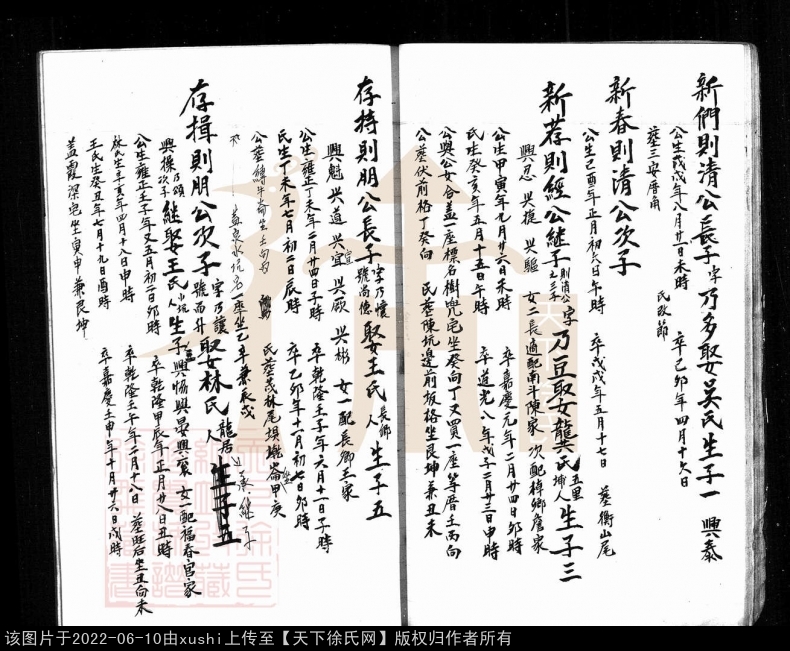 新們則清公長子字乃多娶吳氏生子一 興泰
公生戊戌年八月廿一日未時 卒己卯年四月十六日
塟三安厝角 民改節
新春則清公次子
公生己酉年正月初六日午時 卒戊戌年五月十七日 塟衡山尾
新荐則經公繼子則清公之三子字乃豆娶龔氏五里坤人生子三
興忍 興提 興驅 女二長適配南斗陳家 次配梓鄉詹家
公生甲寅年九月廿六日未時 卒嘉慶元年二月廿四日卯時
氏生癸亥年五月十五日午時 卒道光八年戊子二月廿三日申時
公與公女合盖一座標名樹兜宅坐癸向丁又買一座等厝壬丙向
公塟伏前格丁癸向 氏塟陳坑邊前坂格坐艮坤兼丑未
存持則朋公長子字乃懷號尚德娶王氏長鄉人生子五
興魁 興道 興宜 興厥 興彬 女一配長卿王家
公生雍正丁未年二月廿四日子時 卒乾隆壬子年六月十一日子時
氏生丁未年七月初二日辰時 卒乙卯年十一月初七日卯時
公塟 牛崙生土向 氏塟茂林尾坝壠崙坐甲庚
盖 水坑 一座坐乙辛兼辰戌
存揖則朋公次子字乃讓號而升娶林氏龍居人生子五
興操 次子乃頌承繼子 繼娶王氏小坑人生子 興協興晏興衮 女一配福春官家
公生雍正壬子年又五月初一日卯時 卒乾隆甲辰年正月廿八日丑時
林氏生辛亥年四月十八日申時 卒乾隆壬午年二月十八日 塟 后坐丑向未
王氏生癸丑年七月十九日酉時 卒嘉慶壬申年十月廿六日戌時
盖霞深宅坐寅申兼艮坤
该图片于2022-06-10由xushi上传至【天下徐氏网】版权归作者所有